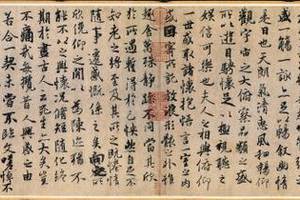 盛一觴一詠亦足以暢敘幽情
是日也天朗氣清惠風和暢仰
觀宇宙之大俯察品類之盛
所以遊目騁懷足以極視聽之
娛信可樂也夫人之相與俯仰
一世或取諸懷抱悟言一室之內
或因寄所託放浪形骸之外雖
趣舍萬殊靜躁不同當其欣
於所遇暫得於己快然自足不
知老之將至及其所之既惓情
隨事遷感慨係之矣向之所
欣俛仰之間以為陳迹猶不
能不以之興懷況脩短隨化終
期於盡古人云死生亦大矣豈
不痛哉每攬昔人興感之由
若合一契未嘗不臨文嗟悼不